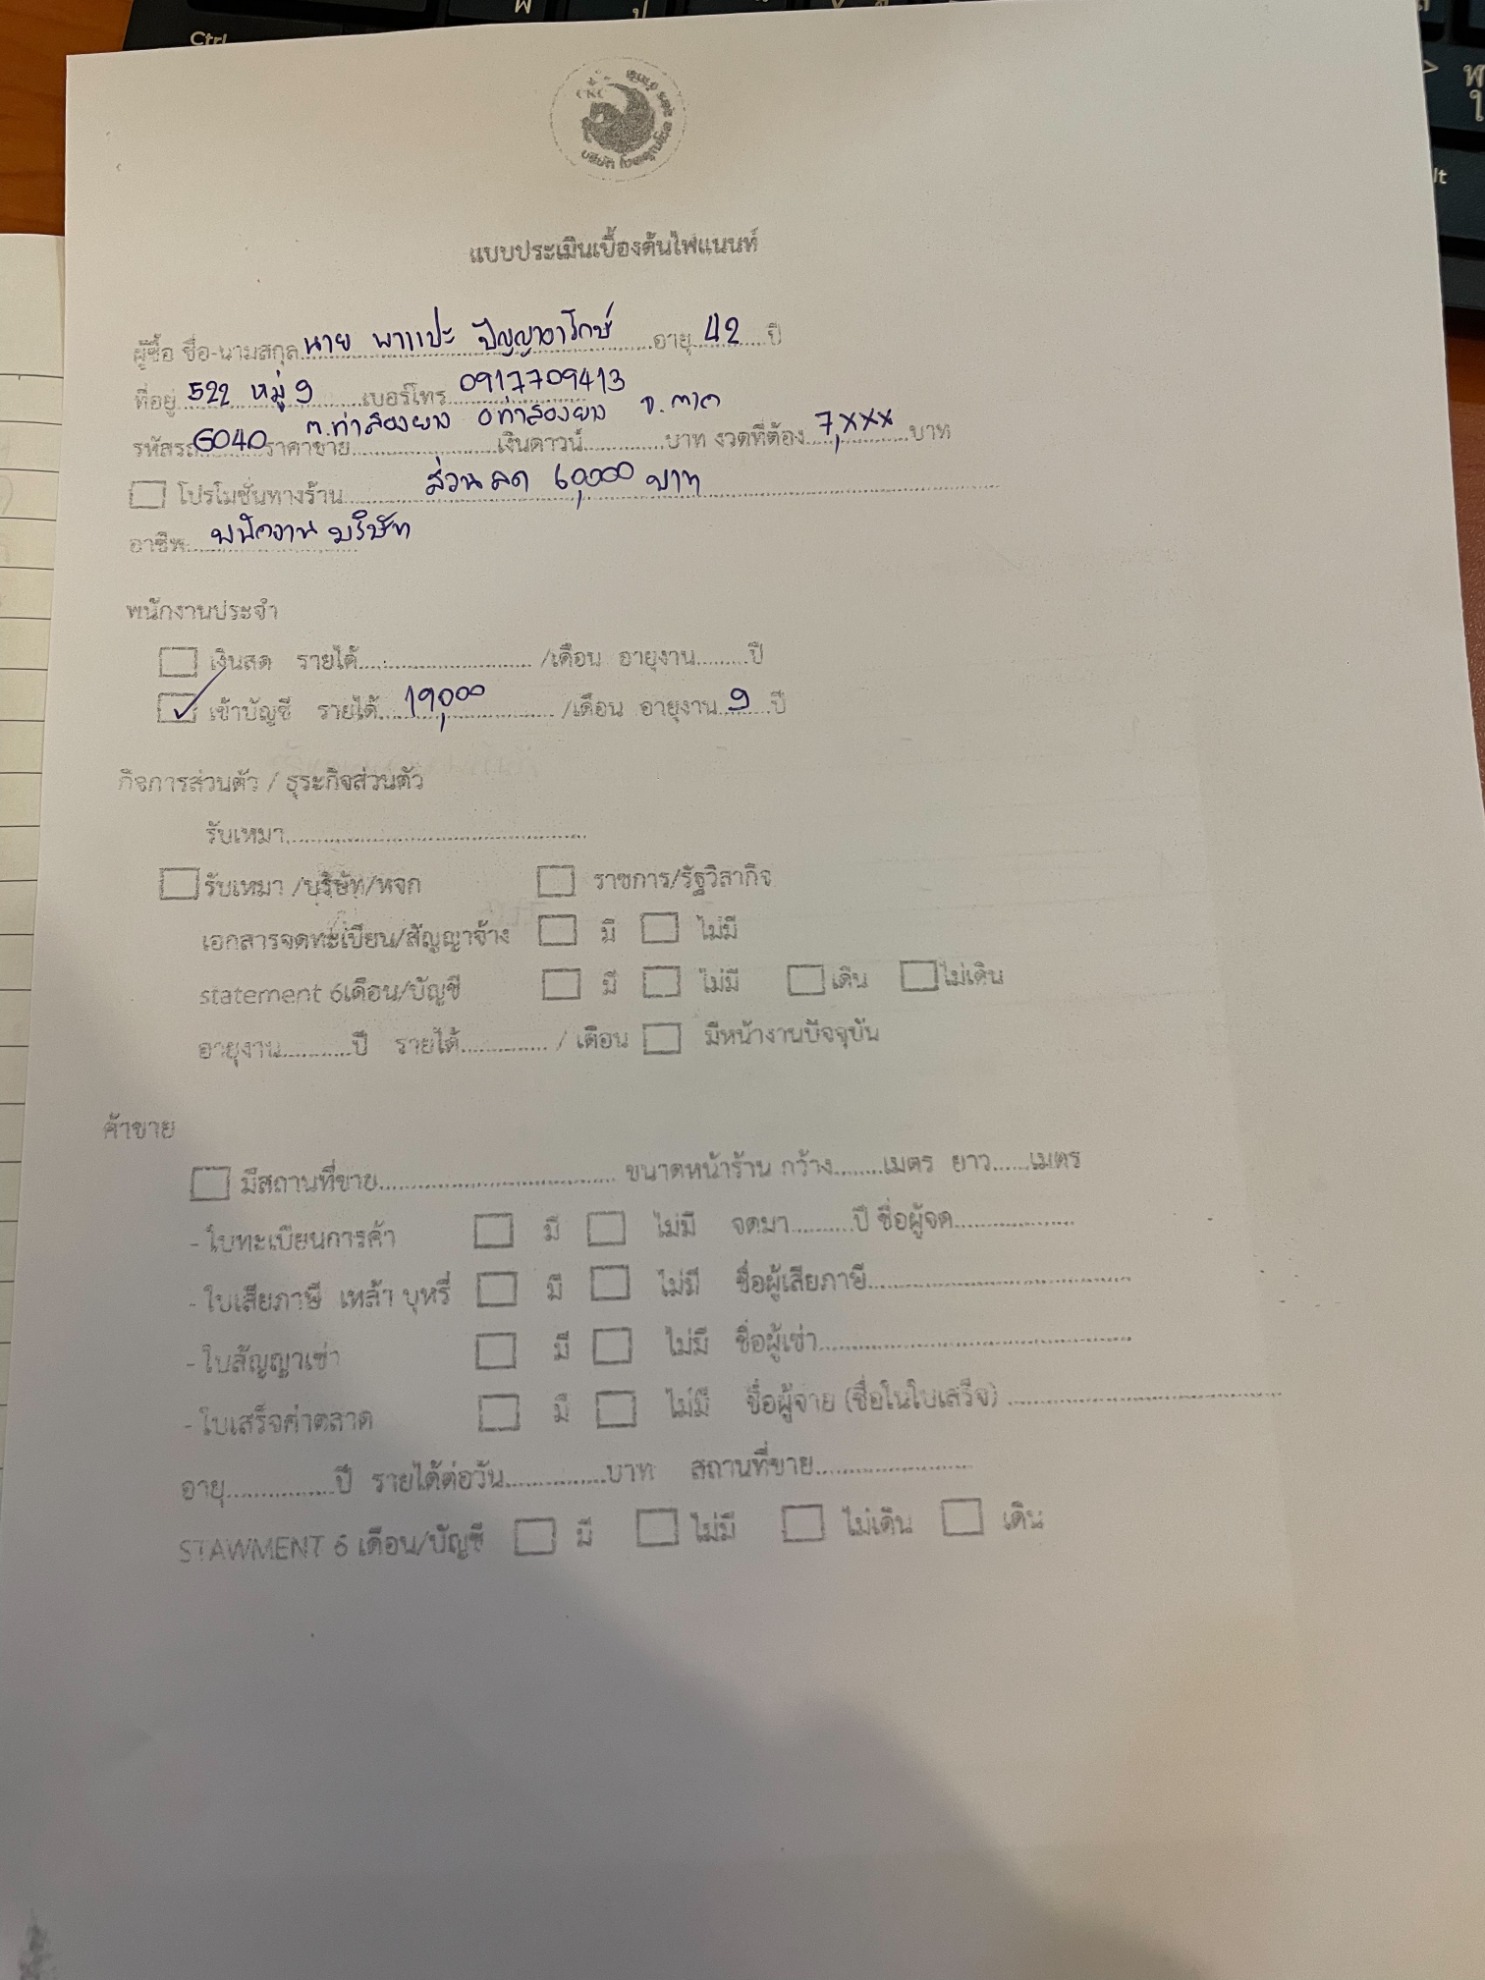 Ctrl
CKC
แบบประเมินเบื้องต้นไฟแนนท์
ผู้ซื้อ ชื่อ-นามสกุล นาย พาแปะ ปัญญาอารักษ์ อายุ 42 ปี
ที่อยู่ 522 หมู่ 9 เบอร์โทร 0917709413
ต.ท่าสองยาง อ.ท่าสองยาง จ.ตาก
รหัสรถ G040 ราคาขาย เงินดาวน์ บาท งวดที่ต้อง 7,xxx บาท
โปรโมชั่นทางร้าน ส่วนลด 60,000 บาท
อาชีพ พนักงานบริษัท
พนักงานประจำ
เงินสด รายได้ /เดือน อายุงาน ปี
✓ เข้าบัญชี รายได้ 19,000 /เดือน อายุงาน 9 ปี
กิจการส่วนตัว / ธุระกิจส่วนตัว
รับเหมา
รับเหมา /บริษัท/หจก ราชการ/รัฐวิสากิจ
เอกสารจดทะเบียน/สัญญาจ้าง มี ไม่มี
statement 6เดือน/บัญชี มี ไม่มี เดิน ไม่เดิน
อายุงาน ปี รายได้ / เดือน มีหน้างานปัจจุบัน
ค้าขาย
มีสถานที่ขาย ขนาดหน้าร้าน กว้าง เมตร ยาว เมตร
- ใบทะเบียนการค้า มี ไม่มี จดมา ปี ชื่อผู้จด
- ใบเสียภาษี เหล้า บุหรี่ มี ไม่มี ชื่อผู้เสียภาษี
- ใบสัญญาเช่า มี ไม่มี ชื่อผู้เช่า
- ใบเสร็จค่าตลาด มี ไม่มี ชื่อผู้จ่าย (ชื่อในใบเสร็จ)
อายุ ปี รายได้ต่อวัน บาท สถานที่ขาย
STAWMENT 6 เดือน/บัญชี มี ไม่มี ไม่เดิน เดิน